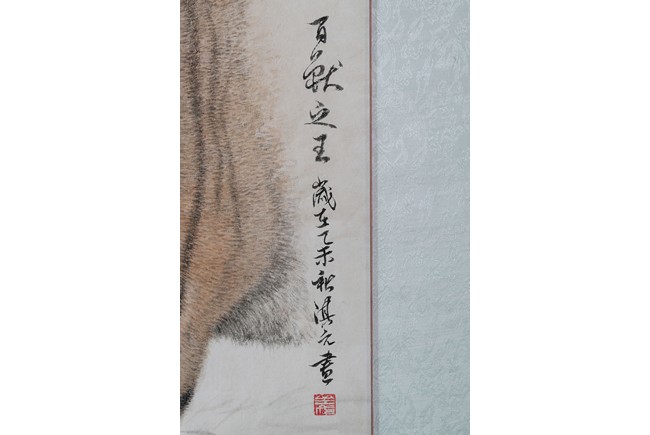 百獸之王 歲在乙未秋淇元畫